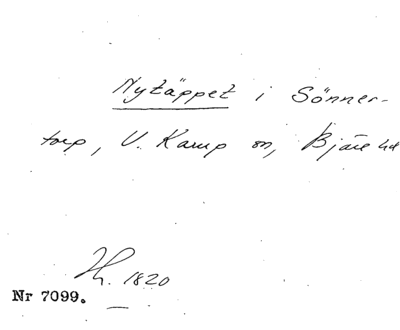 Nytäppet i Sönner-
torp, V. Karup sn, Bjäre hd
1820
Nr 7099.